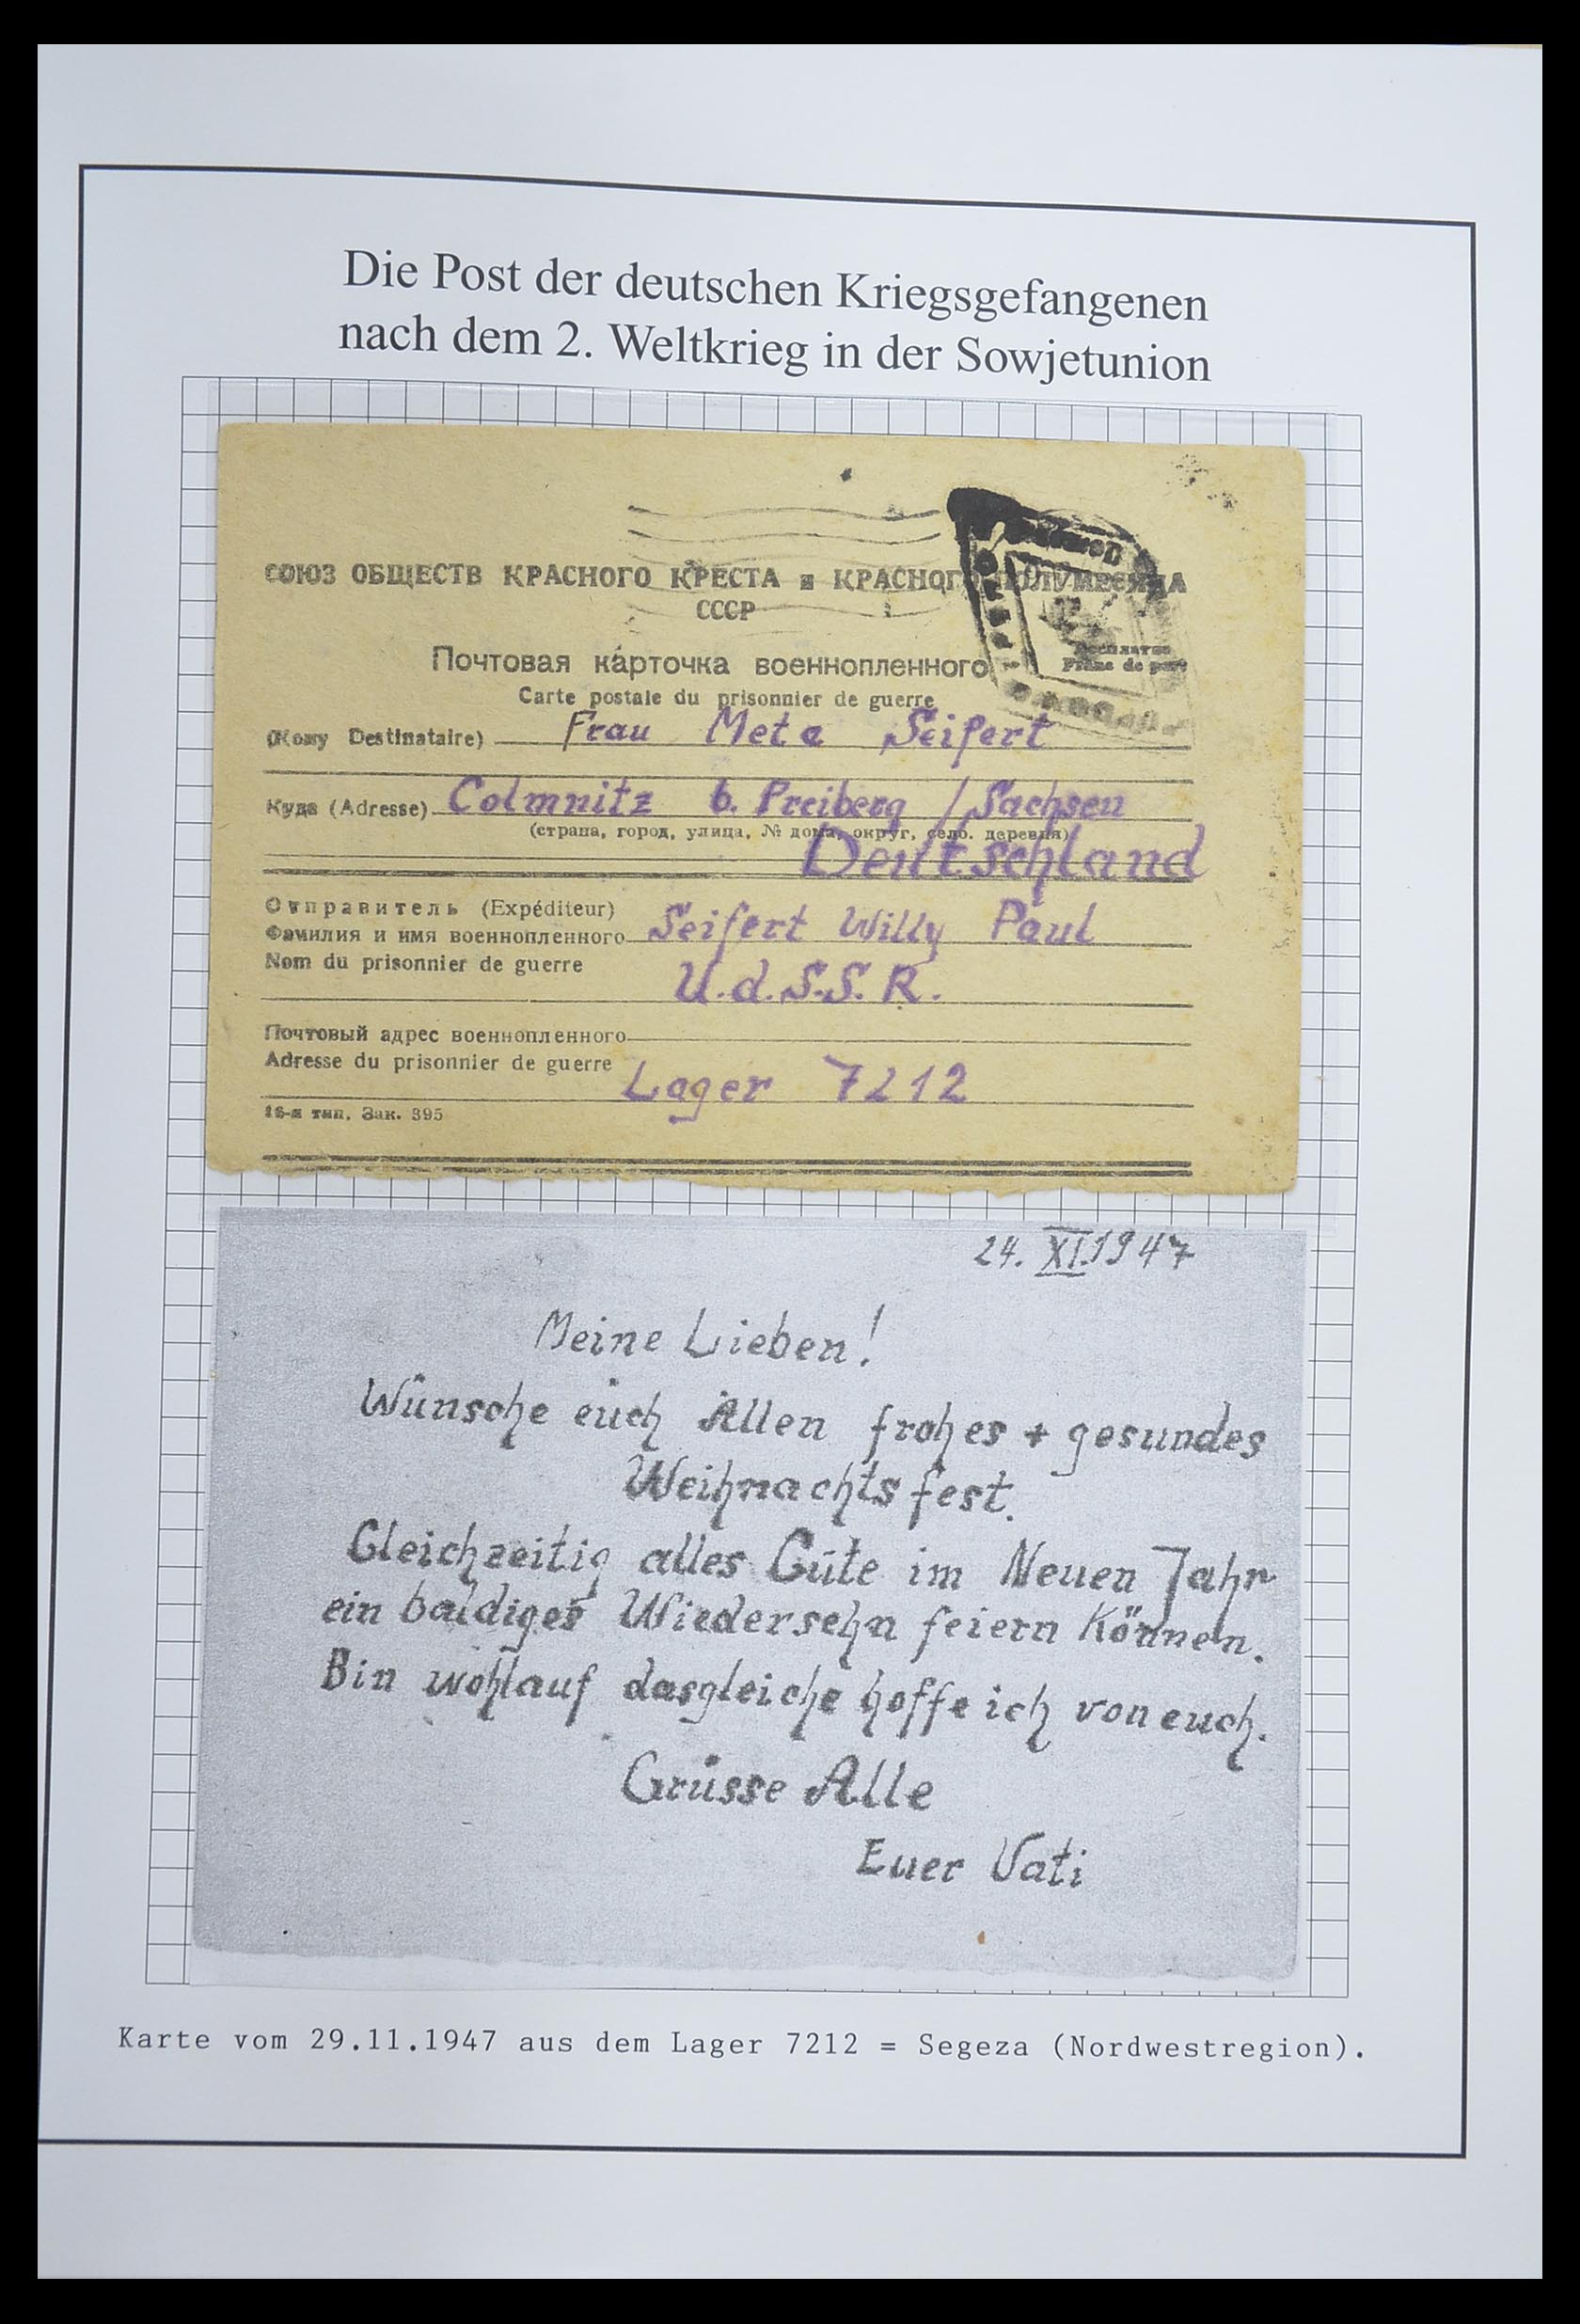 Die Post der deutschen Kriegsgefangenen
nach dem 2. Weltkrieg in der Sowjetunion
СОЮЗ ОБЩЕСТВ КРАСНОГО КРЕСТА и КРАСНОГО ПОЛУМЕСЯЦА
СССР
Почтовая карточка военнопленного
Бесплатно
Franc de port
Carte postale du prisonnier de guerre
(Кому Destinataire) Frau Meta Seifert
Куда (Adresse) Colmnitz b. Freiberg / Sachsen
(страна, город, улица, № дома, округ, село, деревня)
Deutschland
Отправитель (Expéditeur)
Фамилия и имя военнопленного Seifert Willy Paul
Nom du prisonnier de guerre
U.d.S.S.R.
Почтовый адрес военнопленного
Adresse du prisonnier de guerre Lager 7212
16-я тип. Зак. 395
24. XI.1947
Meine Lieben!
Wünsche euch Allen frohes + gesundes
Weihnachtsfest.
Gleichzeitig alles Gute im Neuen Jahr
ein baldiges Wiedersehn feiern Können.
Bin wohlauf dasgleiche hoffe ich von euch.
Grüsse Alle
Euer Vati
Karte vom 29.11.1947 aus dem Lager 7212 = Segeza (Nordwestregion).